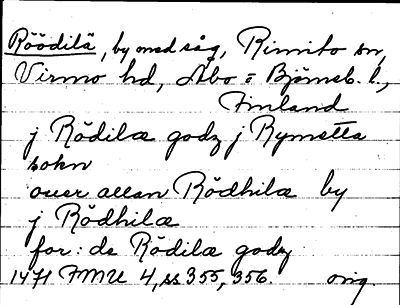 Röödilä, by med såg, Rimito sn,
Virmo hd, Åbo o Björneb. l.,
Finland
j Rödilæ godz j Rymetta
sokn
ouer allan Rödhilæ by
j Rödhilæ
for: de Rödilæ godz
1471 FMU 4, ss 355, 356. orig.